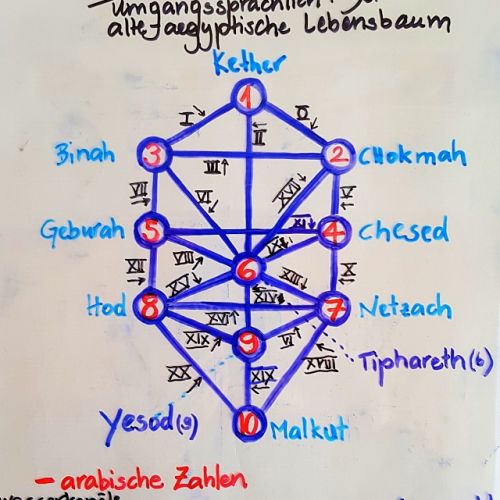 umgangssprachlich
alte/aegyptische Lebensbaum
Kether
1
I O
II
Binah 3 2 CHokmah
III
VII VI XVII V
XI
Geburah 5 4 Chesed
VIII IX
XII 6 XIII X
XV XIV
Hod 8 7 Netzach
XVI
XIX 9 VI
Tiphareth (6)
XX XIX XVIII
Yesod (9) 10 Malkut
- arabische Zahlen